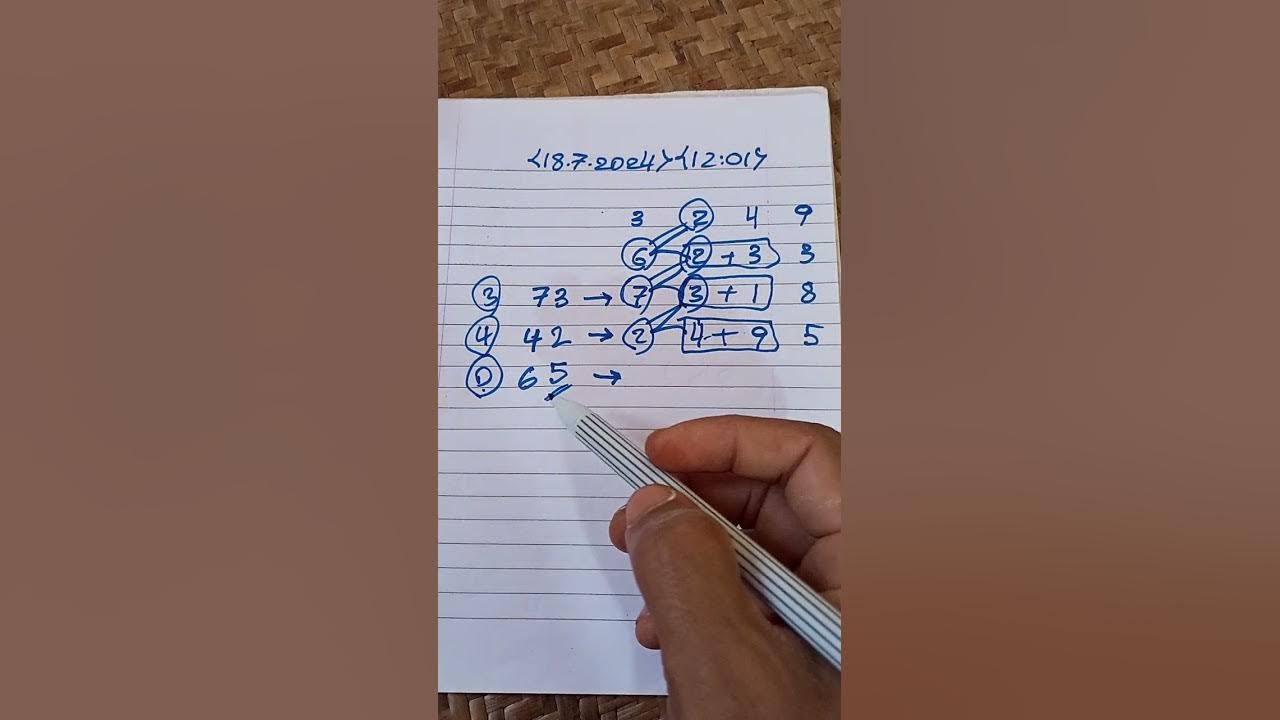 <18.7.2024><12:01>
3 2 4 9
6 2 + 3 3
3 73 → 7 3 + 1 8
4 42 → 2 4 + 9 5
0 65 →